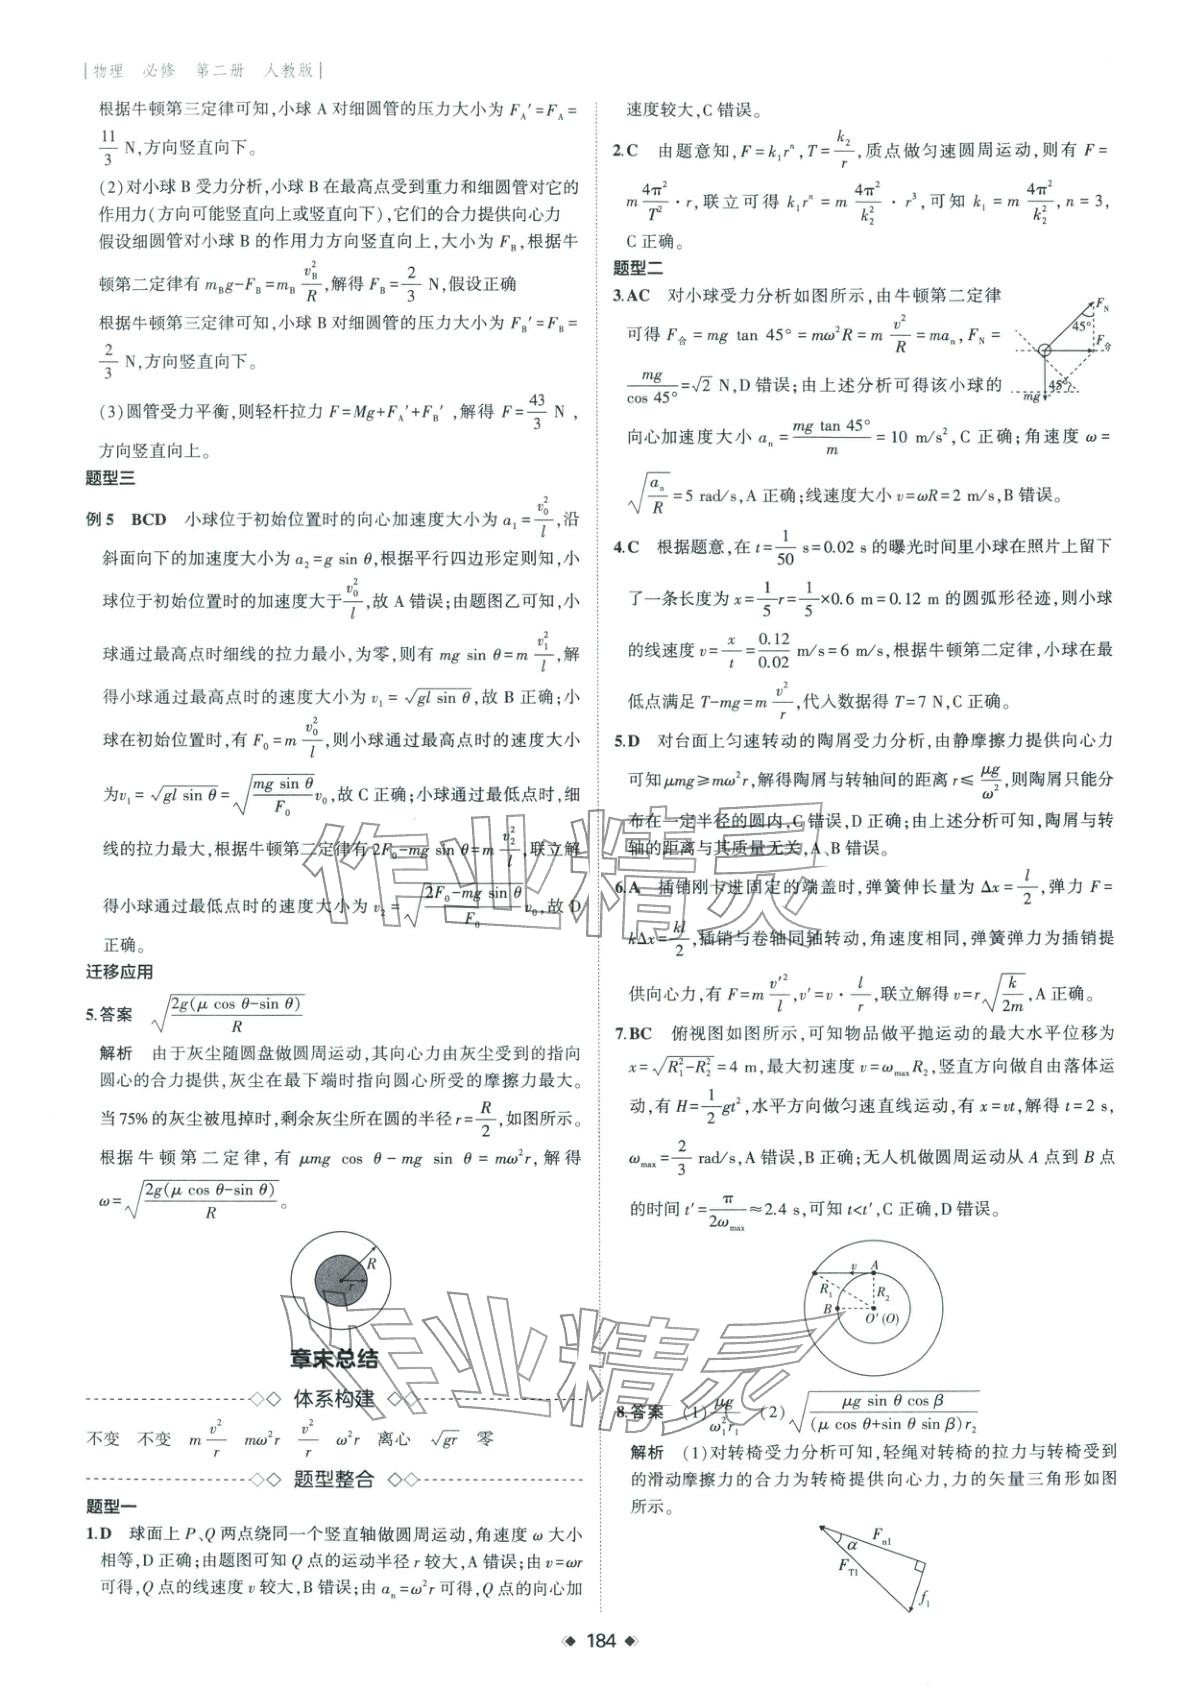 物理 必修 第二册 人教版
根据牛顿第三定律可知,小球 A 对细圆管的压力大小为 F_A′=F_A=
11/3 N,方向竖直向下。
(2)对小球 B 受力分析,小球 B 在最高点受到重力和细圆管对它的
作用力(方向可能竖直向上或竖直向下),它们的合力提供向心力
假设细圆管对小球 B 的作用力方向竖直向上,大小为 F_B,根据牛
顿第二定律有 m_Bg-F_B=m_B v_B²/R,解得 F_B=2/3 N,假设正确
根据牛顿第三定律可知,小球 B 对细圆管的压力大小为 F_B′=F_B=
2/3 N,方向竖直向下。
(3)圆管受力平衡,则轻杆拉力 F=Mg+F_A′+F_B′,解得 F=43/3 N,
方向竖直向上。
题型三
例 5 BCD 小球位于初始位置时的向心加速度大小为 a₁=v₀²/l,沿
斜面向下的加速度大小为 a₂=g sin θ,根据平行四边形定则知,小
球位于初始位置时的加速度大于v₀²/l,故 A 错误;由题图乙可知,小
球通过最高点时细线的拉力最小,为零,则有 mg sin θ=m v₁²/l,解
得小球通过最高点时的速度大小为 v₁=√(gl sin θ),故 B 正确;小
球在初始位置时,有 F₀=m v₀²/l,则小球通过最高点时的速度大小
为v₁=√(gl sin θ)=√(mg sin θ/F₀)v₀,故 C 正确;小球通过最低点时,细
线的拉力最大,根据牛顿第二定律有 2F₀-mg sin θ=m v₂²/l,联立解
得小球通过最低点时的速度大小为 v₂=√((2F₀-mg sin θ)/F₀) v₀,故 D
正确。
迁移应用
5.答案 √(2g(μ cos θ-sin θ)/R)
解析 由于灰尘随圆盘做圆周运动,其向心力由灰尘受到的指向
圆心的合力提供,灰尘在最下端时指向圆心所受的摩擦力最大。
当75%的灰尘被甩掉时,剩余灰尘所在圆的半径 r=R/2,如图所示。
根据牛顿第二定律,有 μmg cos θ-mg sin θ=mω²r,解得
ω=√(2g(μ cos θ-sin θ)/R)。
R
r
章末总结
体系构建
不变 不变 m v²/r mω²r v²/r ω²r 离心 √gr 零
题型整合
题型一
1.D 球面上 P、Q 两点绕同一个竖直轴做圆周运动,角速度 ω 大小
相等,D 正确;由题图可知 Q 点的运动半径 r 较大,A 错误;由 v=ωr
可得,Q 点的线速度 v 较大,B 错误;由 a_n=ω²r 可得,Q 点的向心加
速度较大,C 错误。
2.C 由题意知,F=k₁rⁿ,T=k₂/r,质点做匀速圆周运动,则有 F=
m 4π²/T²·r,联立可得 k₁rⁿ=m 4π²/k₂²·r³,可知 k₁=m 4π²/k₂²,n=3,
C 正确。
题型二
3.AC 对小球受力分析如图所示,由牛顿第二定律
可得 F_合=mg tan 45°=mω²R=m v²/R=ma_n,F_N=
mg/cos 45°=√2 N,D 错误;由上述分析可得该小球的
向心加速度大小 a_n=mg tan 45°/m=10 m/s²,C 正确;角速度 ω=
√(a_n/R)=5 rad/s,A 正确;线速度大小 v=ωR=2 m/s,B 错误。
F_N
45°
F_合
45°
mg
4.C 根据题意,在 t=1/50 s=0.02 s 的曝光时间里小球在照片上留下
了一条长度为 x=1/5 r=1/5×0.6 m=0.12 m 的圆弧形径迹,则小球
的线速度 v=x/t=0.12/0.02 m/s=6 m/s,根据牛顿第二定律,小球在最
低点满足 T-mg=m v²/r,代入数据得 T=7 N,C 正确。
5.D 对台面上匀速转动的陶屑受力分析,由静摩擦力提供向心力
可知 μmg≥mω²r,解得陶屑与转轴间的距离 r≤μg/ω²,则陶屑只能分
布在一定半径的圆内,C 错误,D 正确;由上述分析可知,陶屑与转
轴的距离与其质量无关,A、B 错误。
6.A 插销刚卡进固定的端盖时,弹簧伸长量为 Δx=l/2,弹力 F=
kΔx=kl/2,插销与卷轴同轴转动,角速度相同,弹簧弹力为插销提
供向心力,有 F=m v′²/l,v′=v·l/r,联立解得 v=r√(k/2m),A 正确。
7.BC 俯视图如图所示,可知物品做平抛运动的最大水平位移为
x=√(R₁²-R₂²)=4 m,最大初速度 v=ω_max R₂,竖直方向做自由落体运
动,有 H=1/2 gt²,水平方向做匀速直线运动,有 x=vt,解得 t=2 s,
ω_max=2/3 rad/s,A 错误,B 正确;无人机做圆周运动从 A 点到 B 点
的时间 t′=π/2ω_max≈2.4 s,可知 t<t′,C 正确,D 错误。
v A
R₁ R₂
B O′(O)
8.答案 (1)μg/ω₁²r₁ (2)√(μg sin θ cos β/(μ cos θ+sin θ sin β)r₂)
解析 (1)对转椅受力分析可知,轻绳对转椅的拉力与转椅受到
的滑动摩擦力的合力为转椅提供向心力,力的矢量三角形如图
所示。
F_n1
α
F_T1
f₁
184
作业精灵
作业精灵